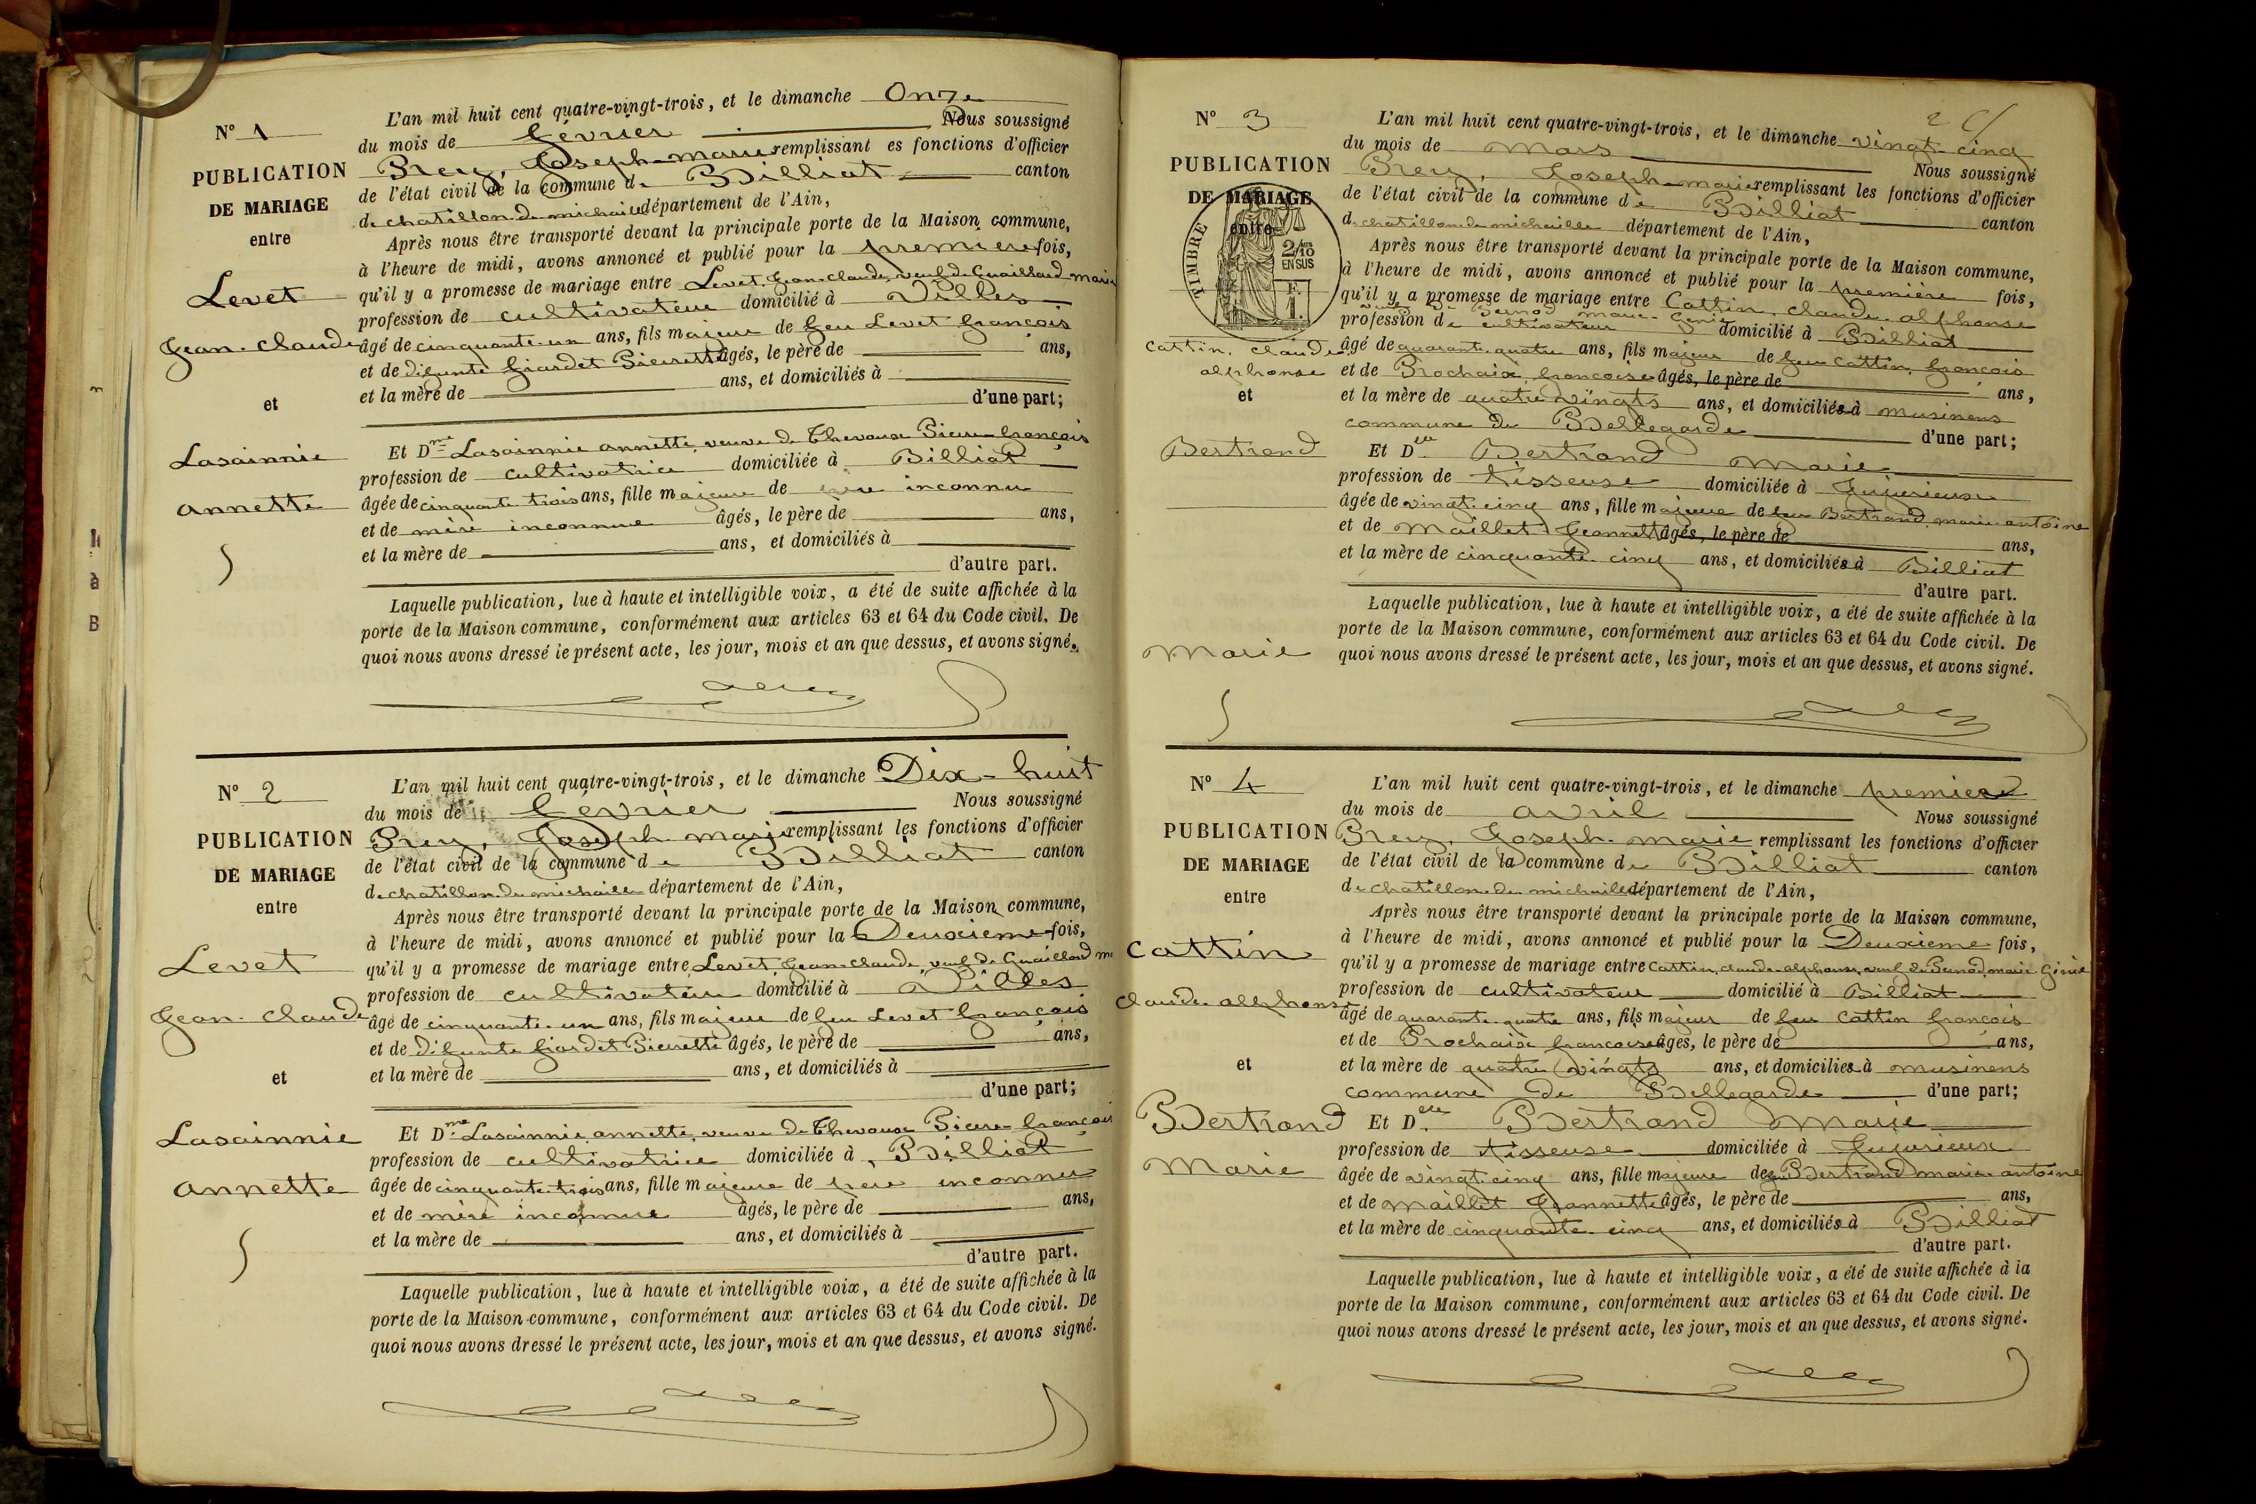 N° 1
PUBLICATION
DE MARIAGE
entre
Levet
Jean-Claude
et
Lasainnie
annette
L'an mil huit cent quatre-vingt-trois, et le dimanche Onze
du mois de février Nous soussigné
Brey, Joseph-marie remplissant es fonctions d'officier
de l'état civil de la commune de Billiat canton
de chatillon de michaille département de l'Ain,
Après nous être transporté devant la principale porte de la Maison commune,
à l'heure de midi, avons annoncé et publié pour la première fois,
qu'il y a promesse de mariage entre Levet, Jean-claude, veuf de Guaillard marie
profession de cultivateur domicilié à Villes
âgé de cinquante-un ans, fils majeur de feu Levet françois
et de défunte Giardet Pierrette âgés, le père de ans,
et la mère de ans, et domiciliés à
d'une part;
Et Dme Lasainnie annette, veuve de Thevoux Pierre-françois
profession de cultivatrice domiciliée à Billiat
âgée de cinquante-trois ans, fille majeure de père inconnu
et de mère inconnue âgés, le père de ans,
et la mère de ans, et domiciliés à
d'autre part.
Laquelle publication, lue à haute et intelligible voix, a été de suite affichée à la
porte de la Maison commune, conformément aux articles 63 et 64 du Code civil. De
quoi nous avons dressé le présent acte, les jour, mois et an que dessus, et avons signé.
N° 2
PUBLICATION
DE MARIAGE
entre
Levet
Jean-Claude
et
Lasainnie
annette
L'an mil huit cent quatre-vingt-trois, et le dimanche Dix-huit
du mois de février Nous soussigné
Brey, Joseph-marie remplissant les fonctions d'officier
de l'état civil de la commune de Billiat canton
de chatillon de michaille département de l'Ain,
Après nous être transporté devant la principale porte de la Maison commune,
à l'heure de midi, avons annoncé et publié pour la Deuxième fois,
qu'il y a promesse de mariage entre Levet, Jean-claude, veuf de Guaillard m
profession de cultivateur domicilié à Villes
âgé de cinquante-un ans, fils majeur de feu Levet françois
et de défunte Giardet Pierrette âgés, le père de ans,
et la mère de ans, et domiciliés à
d'une part;
Et Dme Lasainnie annette, veuve de Thevoux Pierre-françois
profession de cultivatrice domiciliée à Billiat
âgée de cinquante-trois ans, fille majeure de père inconnu
et de mère inconnue âgés, le père de ans,
et la mère de ans, et domiciliés à
d'autre part.
Laquelle publication, lue à haute et intelligible voix, a été de suite affichée à la
porte de la Maison commune, conformément aux articles 63 et 64 du Code civil. De
quoi nous avons dressé le présent acte, les jour, mois et an que dessus, et avons signé.
N° 3
PUBLICATION
DE MARIAGE
entre
TIMBRE
2/10
EN SUS
F.
1.
Cattin, Claude
alphonse
et
Bertrand
Marie
L'an mil huit cent quatre-vingt-trois, et le dimanche vingt-cinq
du mois de mars Nous soussigné
Brey, Joseph-marie remplissant les fonctions d'officier
de l'état civil de la commune de Billiat canton
de chatillon de michaille département de l'Ain,
Après nous être transporté devant la principale porte de la Maison commune,
à l'heure de midi, avons annoncé et publié pour la première fois,
qu'il y a promesse de mariage entre Cattin, claude-alphonse
veuf de Bernod marie Génie
profession de cultivateur domicilié à Billiat
âgé de quarante-quatre ans, fils majeur de feu Cattin, françois
et de Brochaix, françoise âgés, le père de ans,
et la mère de quatre-vingts ans, et domiciliés à musinens
commune de Bellegarde d'une part;
Et Dlle Bertrand Marie
profession de tisseuse domiciliée à Jujurieux
âgée de vingt-cinq ans, fille majeure de feu Bertrand, marie-antoine
et de Maillet Jeannette âgés, le père de ans,
et la mère de cinquante-cinq ans, et domiciliés à Billiat
d'autre part.
Laquelle publication, lue à haute et intelligible voix, a été de suite affichée à la
porte de la Maison commune, conformément aux articles 63 et 64 du Code civil. De
quoi nous avons dressé le présent acte, les jour, mois et an que dessus, et avons signé.
N° 4
PUBLICATION
DE MARIAGE
entre
Cattin
Claude-alphonse
et
Bertrand
Marie
L'an mil huit cent quatre-vingt-trois, et le dimanche premier
du mois de avril Nous soussigné
Brey, Joseph-marie remplissant les fonctions d'officier
de l'état civil de la commune de Billiat canton
de chatillon-de-michaille département de l'Ain,
Après nous être transporté devant la principale porte de la Maison commune,
à l'heure de midi, avons annoncé et publié pour la Deuxième fois,
qu'il y a promesse de mariage entre Cattin, claude-alphonse, veuf de Bernod, marie Génie
profession de cultivateur domicilié à Billiat
âgé de quarante-quatre ans, fils majeur de feu Cattin françois
et de Brochaix françoise âgés, le père de ans,
et la mère de quatre-vingts ans, et domiciliés à musinens
commune de Bellegarde d'une part;
Et Dlle Bertrand Marie
profession de tisseuse domiciliée à Jujurieux
âgée de vingt-cinq ans, fille majeure de feu Bertrand marie-antoine
et de Maillet Jeannette âgés, le père de ans,
et la mère de cinquante-cinq ans, et domiciliés à Billiat
d'autre part.
Laquelle publication, lue à haute et intelligible voix, a été de suite affichée à la
porte de la Maison commune, conformément aux articles 63 et 64 du Code civil. De
quoi nous avons dressé le présent acte, les jour, mois et an que dessus, et avons signé.